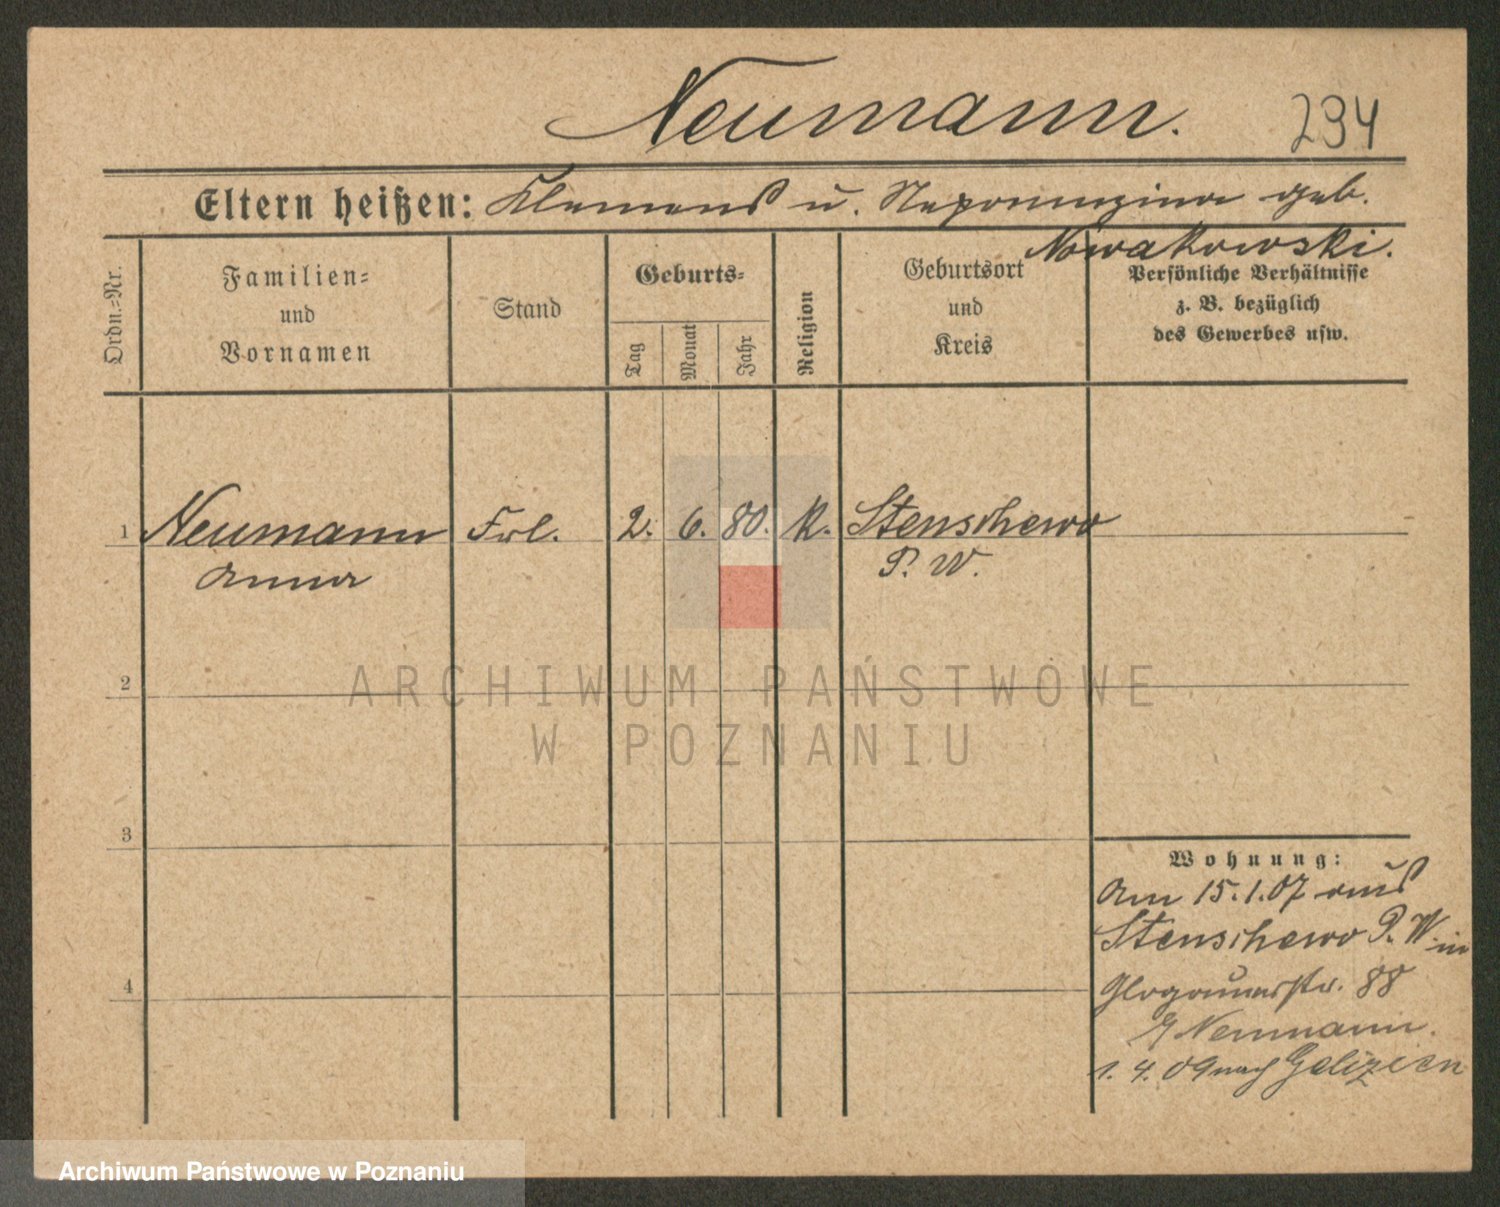 Neumann.
234
Eltern heißen: Klemens u. Nepomuzina geb.
Nowakowski.
Ordn.=Nr.
Familien=
und
Vornamen
Stand
Geburts=
Tag
Monat
Jahr
Religion
Geburtsort
und
Kreis
Persönliche Verhältnisse
z. B. bezüglich
des Gewerbes usw.
1 Neumann Frl. 2. 6. 80. k. Stenschewo
Anna P. W.
2
3
4
Wohnung:
Am 15.1.07 aus
Stenschewo P. W. in
Glogauerstr. 88
Neumann.
1. 4. 09 nach Galizien
ARCHIWUM PAŃSTWOWE
W POZNANIU
Archiwum Państwowe w Poznaniu